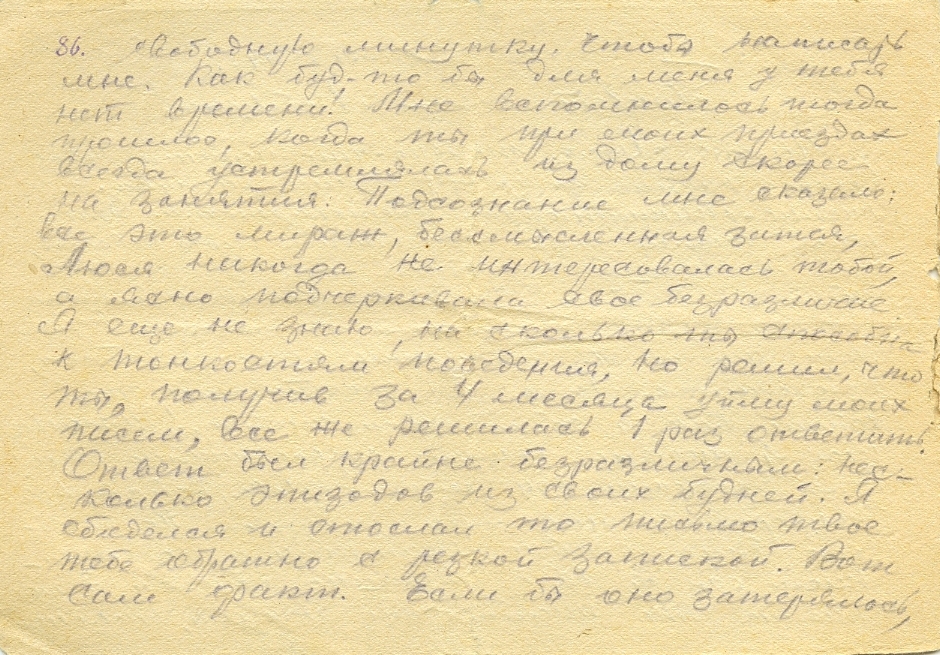 86. свободную минутку, чтобы написать
мне. Как буд-то бы для меня у тебя
нет времени! Мне вспомнилось тогда
прошлое, когда ты при моих приездах
всегда устремлялась из дому скорее
на занятия. Подсознание мне сказало:
все это мираж, бессмысленная затея,
Люся никогда не интересовалась тобой,
а явно подчеркивала свое безразличие
Я еще не знаю, на сколько ты способна
к тонкостям поведения, но решил, что
ты, получив за 4 месяца уйму моих
писем, все же решилась 1 раз ответить.
Ответ был крайне безразличным: нес-
колько эпизодов из своих будней. Я
обиделся и отослал то письмо твое
тебе обратно с резкой запиской. Вот
сам факт. Если бы оно затерялось,